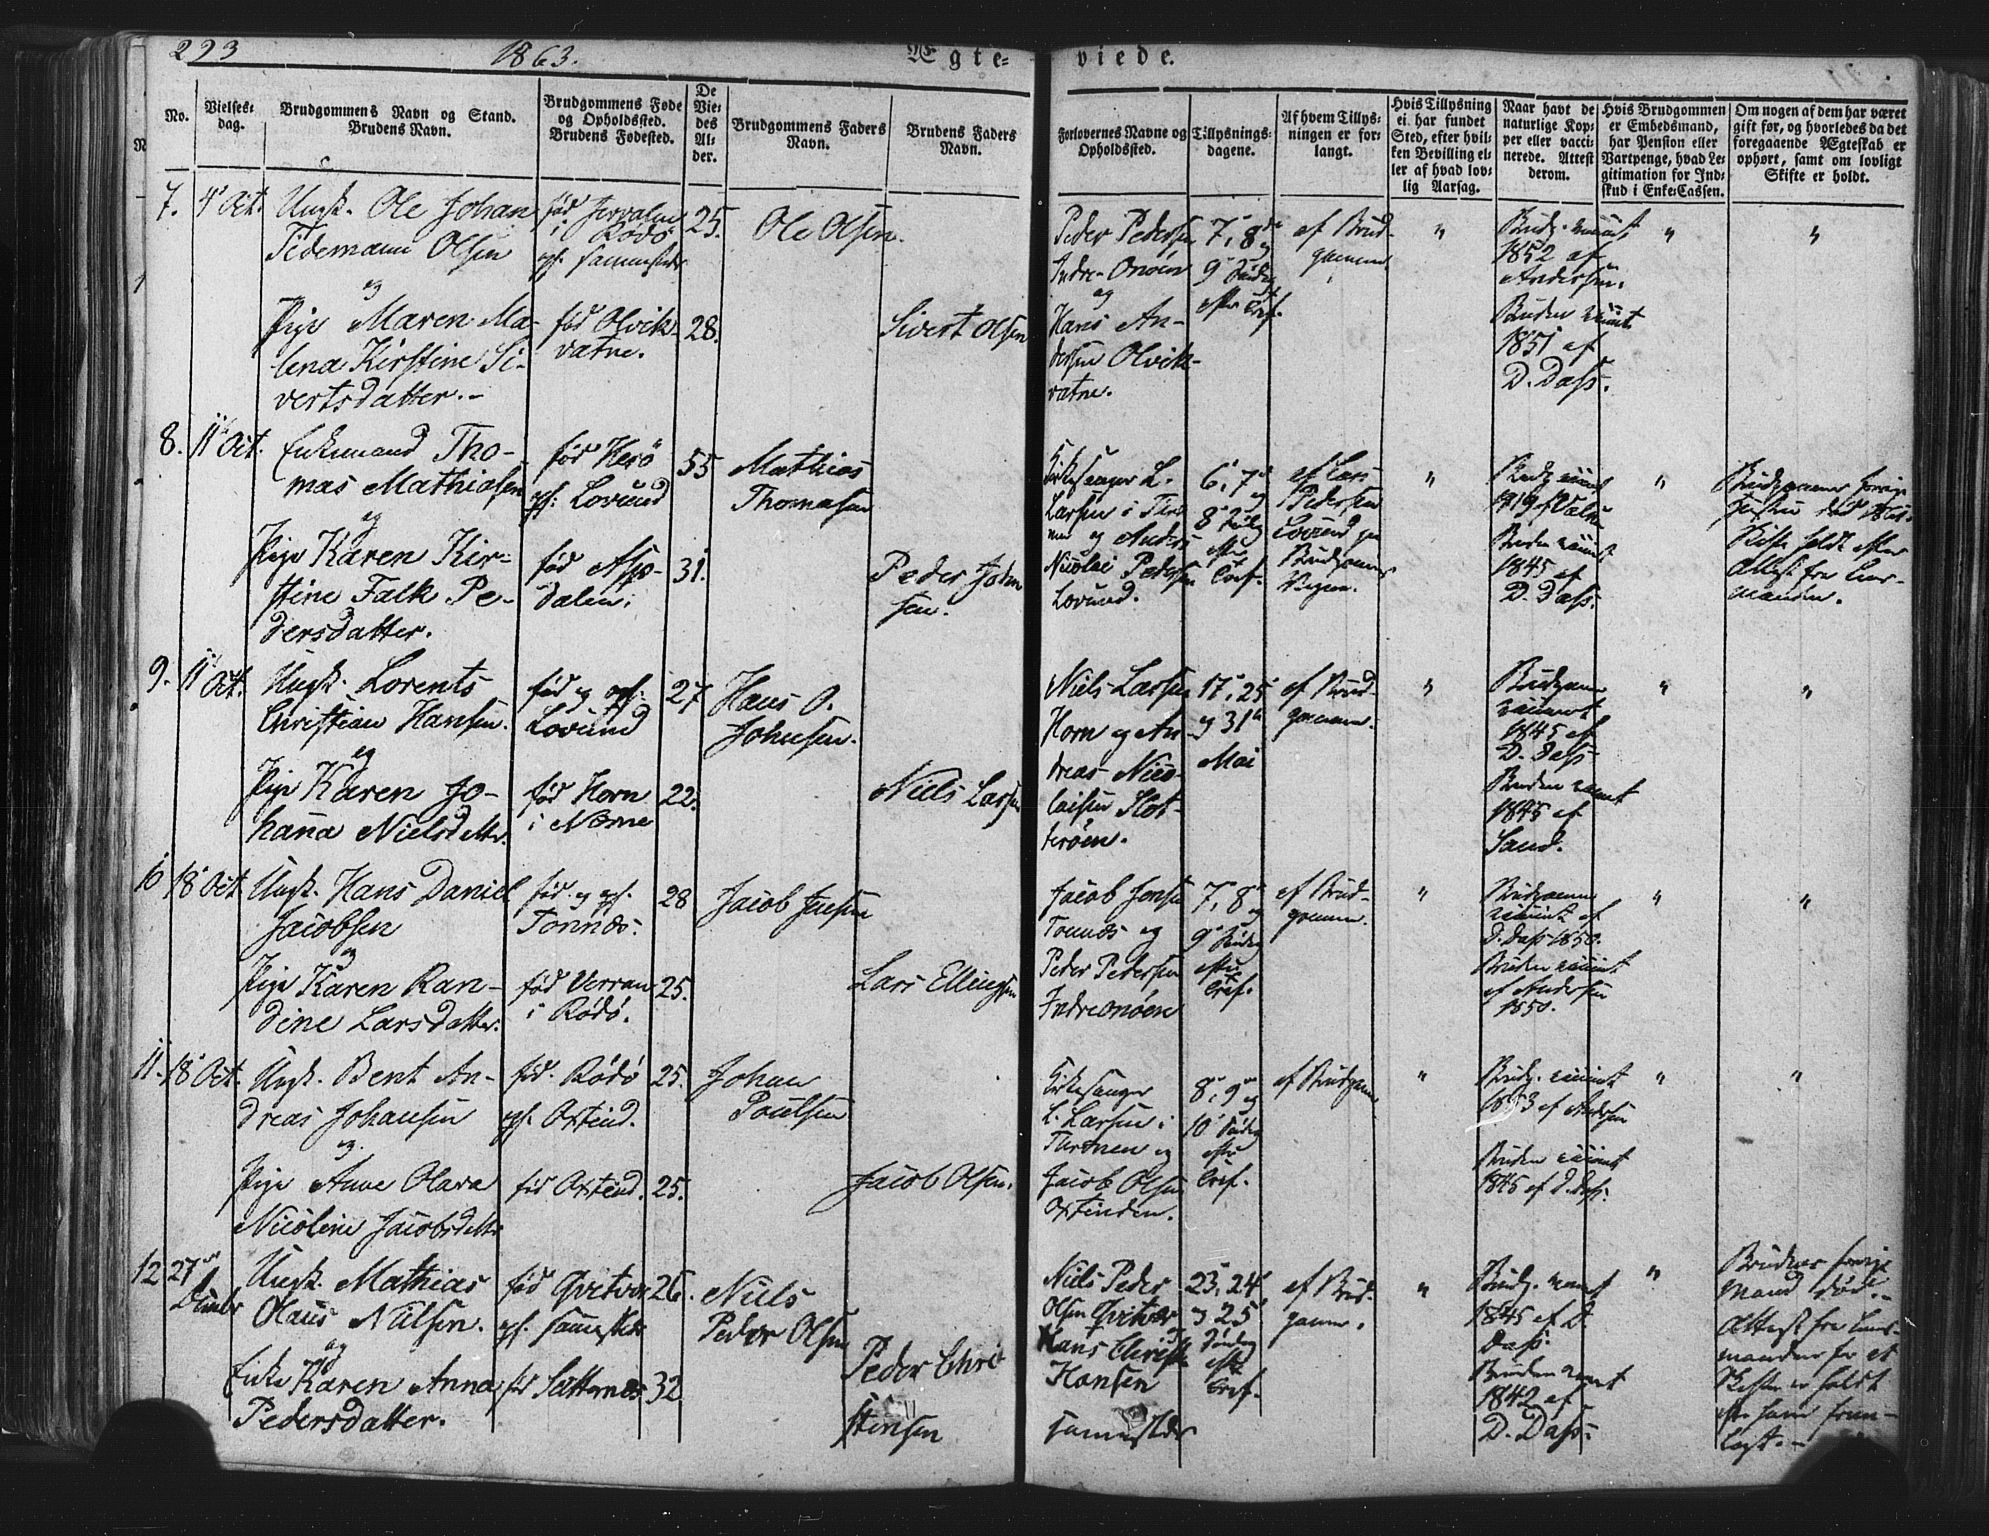 293 1863. Ægte= viede.
No.
Vielses=
dag.
Brudgommens Navn og Stand.
Brudens Navn.
Brudgommens Føde
og Opholdssted.
Brudens Fødested.
De
Vie=
des
Al=
der.
Brudgommens Faders
Navn.
Brudens Faders
Navn.
Forlovernes Navne og
Opholdssted.
Tillysnings=
dagene.
Af hvem Tillys=
ningen er for=
langt.
Hvis Tillysning
ei har fundet
Sted, efter hvil=
ken Bevilling el=
ler af hvad lov=
lig Aarsag.
Naar havt de
naturlige Kop=
per eller vacci=
nerede. Attest
derom.
Hvis Brudgommen
er Embedsmand,
har Pension eller
Vartpenge, hvad Le=
gitimation for Ind=
skud i Enke=Cassen.
Om nogen af dem har været
gift før, og hvorledes da det
foregaaende Ægteskab er
ophørt, samt om lovligt
Skifte er holdt.
7. 4 Oct. Ungk. Ole Johan
Tidemann Olsen
og
Pige Maren Ma-
lena Kirstine Si-
vertsdatter.-
i Rødø
fød Olvik-
vatne.
25.
28.
Ole Olsen.
Sivert Olsen
Peder Pedersen
Indre-Onøen
og
Hans An-
dersen Olvik-
vatne.
7, 8 og
9 Søndag
efter Tref.
af Brud-
gommen
"
Brudg. vaccint
1852 af
Andersen.
Bruden vaccint
1851 af
D. Dass.
"
"
8. 11 Oct. Enkemand Tho-
mas Mathiasen
og
Pige Karen Kir-
stine Falk Pe-
dersdatter.
fød Herø
opf. Lovund
fød Alfs-
dalen;
55
31.
Mathias
Thomasen
Peder John
sen.
Kirkesanger L.
Larsen i
og Anders
Nicolai Pedersen
Lovund.
6, 7 og
8 Søndag
efter
Tref.
af Lars
Pedersen
Lovund paa
Brudgommens
Vegne.
"
Brudg. vaccint
1819 af
Bruden vaccint
1845 af
D. Dass.
"
Brudgommens forrige
Hustru død
Skifte holdt efter
Attest fra Lens-
manden.
9. 11 Oct. Ungk. Lorents
Christian Hansen.
og
Pige Karen Jo-
hanna Nielsdatter.
fød og opf.
Lovund
fød Horn
i Næsne
27
22.
Hans O.
Johnsen.
Niels Larsen
Niels Larsen
Horn og An-
dreas Nico-
laisen Slot-
terøen.
17, 25
og 31
Mai
af Brud-
gommen.
"
Brudgommen
vaccineret
1845 af
D. Dass
Bruden vaccint
1845 af
Sand.
"
"
10 18 Oct. Ungk. Hans Daniel
Jacobsen
og
Pige Karen Ran-
dine Larsdatter.
fød og opf.
Tonnæs.
fød Verran
i Rødø.
28
25.
Jacob Jensen
Lars Ellingsen
Jacob Jensen
Tonnæs og
Peder Pedersen
Indreonøen
7, 8 og
9 Søndag
efter
Tref.
af Brud-
gommen.
"
Brudgommen
vaccint af
D. Dass 1850.
Bruden vaccint
af Andersen
1850.
"
"
11. 18 Oct. Ungk. Bent An-
dreas Johansen
og
Pige Anne Olava
Nicoline Jacobsdatter
fød. Rødø
opf. Oxtind.
fød Oxtind.
25.
25.
Johan
Poulsen
Jacob Olsen.
Kirkesanger
L. Larsen i
og
Jacob Olsen
Oxtinden.
8, 9 og
10 Søndag
efter
Tref.
af Brudgommen
"
Brudg. vaccint
1853 af Andersen
Bruden vaccint
1845 af D. Dass.
"
"
12 27 Decbr Ungk. Mathias
Olaus Nilsen.
og
Enke Karen Anna
Pedersdatter.
fød Qvitvær
opf. sammesteds
fød Sætternæs
26.
32.
Niels
Peder Olsen
Peder Chri
stensen
Niels Peder
Olsen Qvitvær
Hans Christian
Hansen
sammesteds
23, 24
og 25
Søndag
efter
Tref.
af Brud-
gommen.
"
Brudg. vaccint
1845 af D.
Dass.
Bruden vaccint
1842 af
D. Dass.
"
Brudens forrige
Mand død.-
Attest fra Lens-
manden for at
Skifte er holdt
efter ham frem-
lagt.-